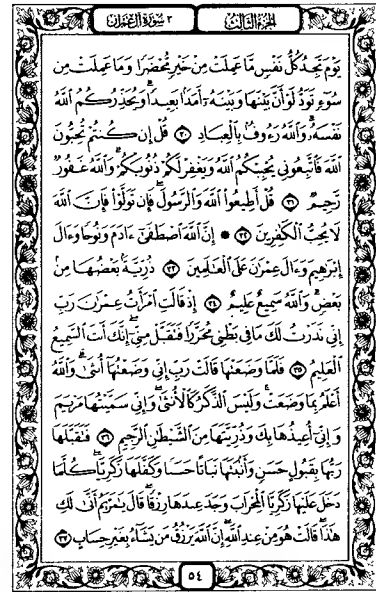 ٣ سورة آل عمران
الجزء الثالث
يَوْمَ تَجِدُ كُلُّ نَفْسٍ مَّا عَمِلَتْ مِنْ خَيْرٍ مُّحْضَرًا وَمَا عَمِلَتْ مِن
سُوٓءٍ تَوَدُّ لَوْ أَنَّ بَيْنَهَا وَبَيْنَهُۥٓ أَمَدًۢا بَعِيدًا ۗ وَيُحَذِّرُكُمُ ٱللَّهُ
نَفْسَهُۥ ۗ وَٱللَّهُ رَءُوفٌۢ بِٱلْعِبَادِ ٣٠ قُلْ إِن كُنتُمْ تُحِبُّونَ
ٱللَّهَ فَٱتَّبِعُونِى يُحْبِبْكُمُ ٱللَّهُ وَيَغْفِرْ لَكُمْ ذُنُوبَكُمْ ۗ وَٱللَّهُ غَفُورٌ
رَّحِيمٌ ٣١ قُلْ أَطِيعُوا۟ ٱللَّهَ وَٱلرَّسُولَ ۖ فَإِن تَوَلَّوْا۟ فَإِنَّ ٱللَّهَ
لَا يُحِبُّ ٱلْكَٰفِرِينَ ٣٢ * إِنَّ ٱللَّهَ ٱصْطَفَىٰٓ ءَادَمَ وَنُوحًا وَءَالَ
إِبْرَٰهِيمَ وَءَالَ عِمْرَٰنَ عَلَى ٱلْعَٰلَمِينَ ٣٣ ذُرِّيَّةًۢ بَعْضُهَا مِنۢ
بَعْضٍ ۗ وَٱللَّهُ سَمِيعٌ عَلِيمٌ ٣٤ إِذْ قَالَتِ ٱمْرَأَتُ عِمْرَٰنَ رَبِّ
إِنِّى نَذَرْتُ لَكَ مَا فِى بَطْنِى مُحَرَّرًا فَتَقَبَّلْ مِنِّىٓ ۖ إِنَّكَ أَنتَ ٱلسَّمِيعُ
ٱلْعَلِيمُ ٣٥ فَلَمَّا وَضَعَتْهَا قَالَتْ رَبِّ إِنِّى وَضَعْتُهَآ أُنثَىٰ وَٱللَّهُ
أَعْلَمُ بِمَا وَضَعَتْ وَلَيْسَ ٱلذَّكَرُ كَٱلْأُنثَىٰ ۖ وَإِنِّى سَمَّيْتُهَا مَرْيَمَ
وَإِنِّىٓ أُعِيذُهَا بِكَ وَذُرِّيَّتَهَا مِنَ ٱلشَّيْطَٰنِ ٱلرَّجِيمِ ٣٦ فَتَقَبَّلَهَا
رَبُّهَا بِقَبُولٍ حَسَنٍ وَأَنۢبَتَهَا نَبَاتًا حَسَنًا وَكَفَّلَهَا زَكَرِيَّا ۖ كُلَّمَا
دَخَلَ عَلَيْهَا زَكَرِيَّا ٱلْمِحْرَابَ وَجَدَ عِندَهَا رِزْقًا ۖ قَالَ يَٰمَرْيَمُ أَنَّىٰ لَكِ
هَٰذَا ۖ قَالَتْ هُوَ مِنْ عِندِ ٱللَّهِ ۖ إِنَّ ٱللَّهَ يَرْزُقُ مَن يَشَآءُ بِغَيْرِ حِسَابٍ ٣٧
٥٤